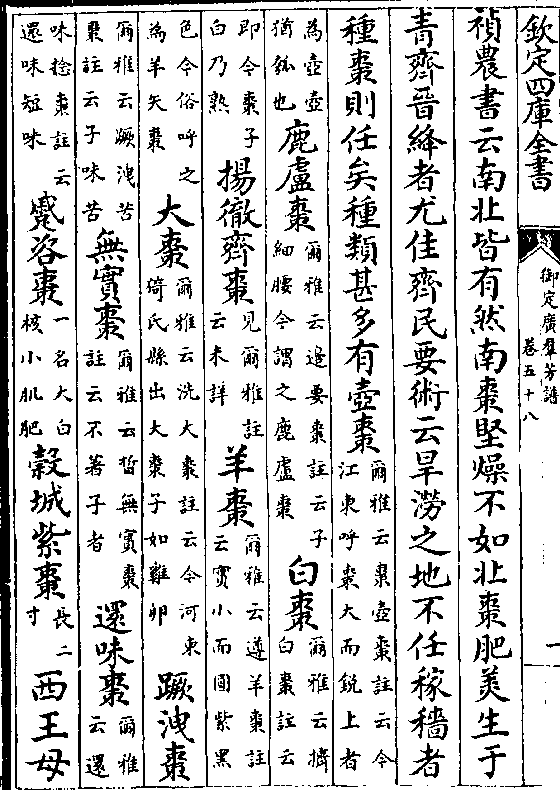 欽定四庫全書
御定廣羣芳譜
卷五十八
一
禎農書云南北皆有然南棗堅燥不如北棗肥美生于
青齊晉絳者尤佳齊民要術云旱澇之地不任稼穡者
種棗則任矣種類甚多有壺棗
爾雅云棗壺棗註云今
江東呼棗大而銳上者
為壺壺
猶瓠也
鹿盧棗
爾雅云邊要棗註云子
細腰今謂之鹿盧棗
白棗
爾雅云擠
白棗註云
即今棗子
白乃熟
揚徹齊棗
見爾雅註
云未詳
羊棗
爾雅云遵羊棗註
云實小而圓紫黑
色今俗呼之
為羊矢棗
大棗
爾雅云洗大棗註云今河東
猗氏縣出大棗子如雞卵
蹶洩棗
爾雅云蹶洩苦
棗註云子味苦
無實棗
爾雅云晳無實棗
註云不著子者
還味棗
爾雅
云還
味捻棗註云
還味短味
蹙咨棗
一名大白
核小肌肥
穀城紫棗
長二
寸
西王母